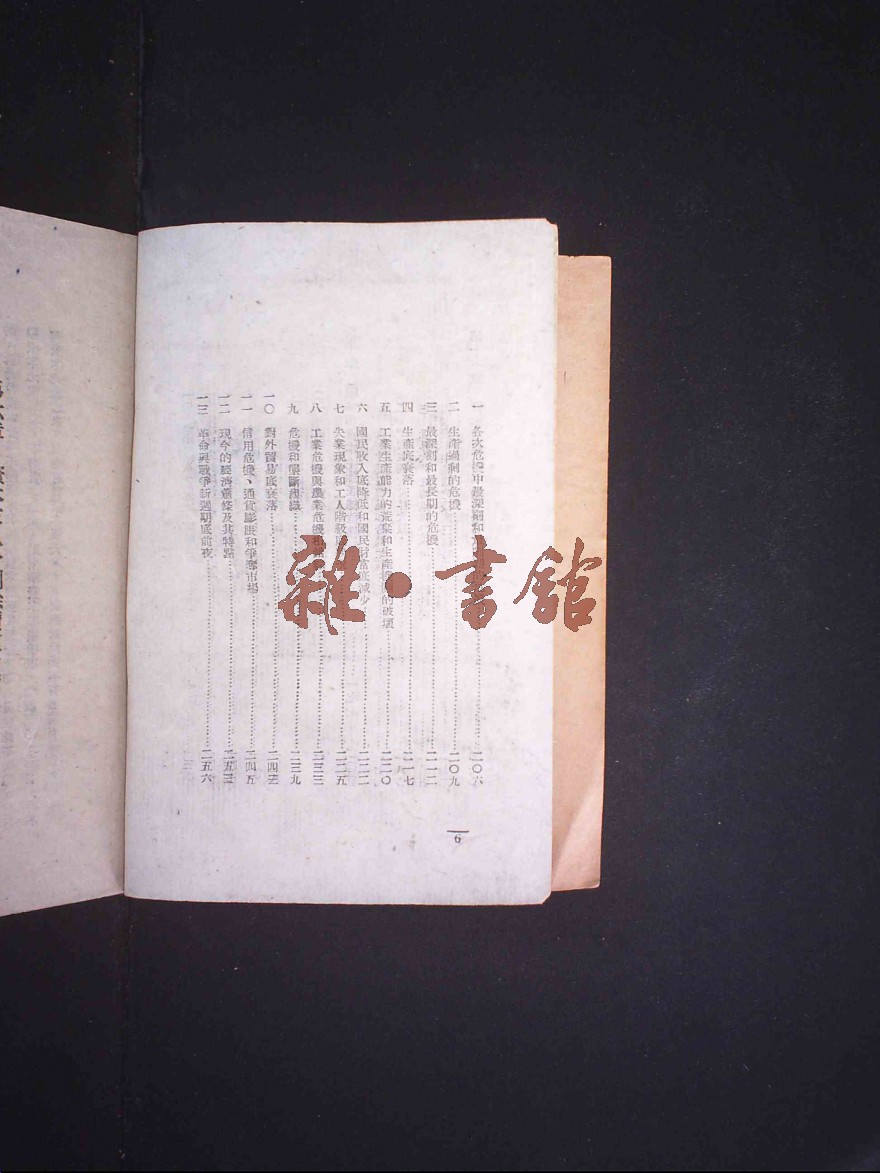 一 各次危機中最深刻和 二〇六
二 生產過剩的危機 二〇九
三 最深刻和最長期的危機 二一二
四 生產底衰落 二一七
五 工業生產能力的荒棄和生產 的破壞 二二〇
六 國民收入底降低和國民財富底減少 二二二
七 失業現象和工人階級 二二五
八 工業危機與農業危機 二三三
九 危機和壟斷組織 二三九
一〇 對外貿易底衰落 二四三
一一 信用危機、通貨膨脹和爭奪市場 二四五
一二 現今的經濟蕭條及其特點 二五三
一三 革命與戰爭新週期底前夜 二五六
6
雜·書館